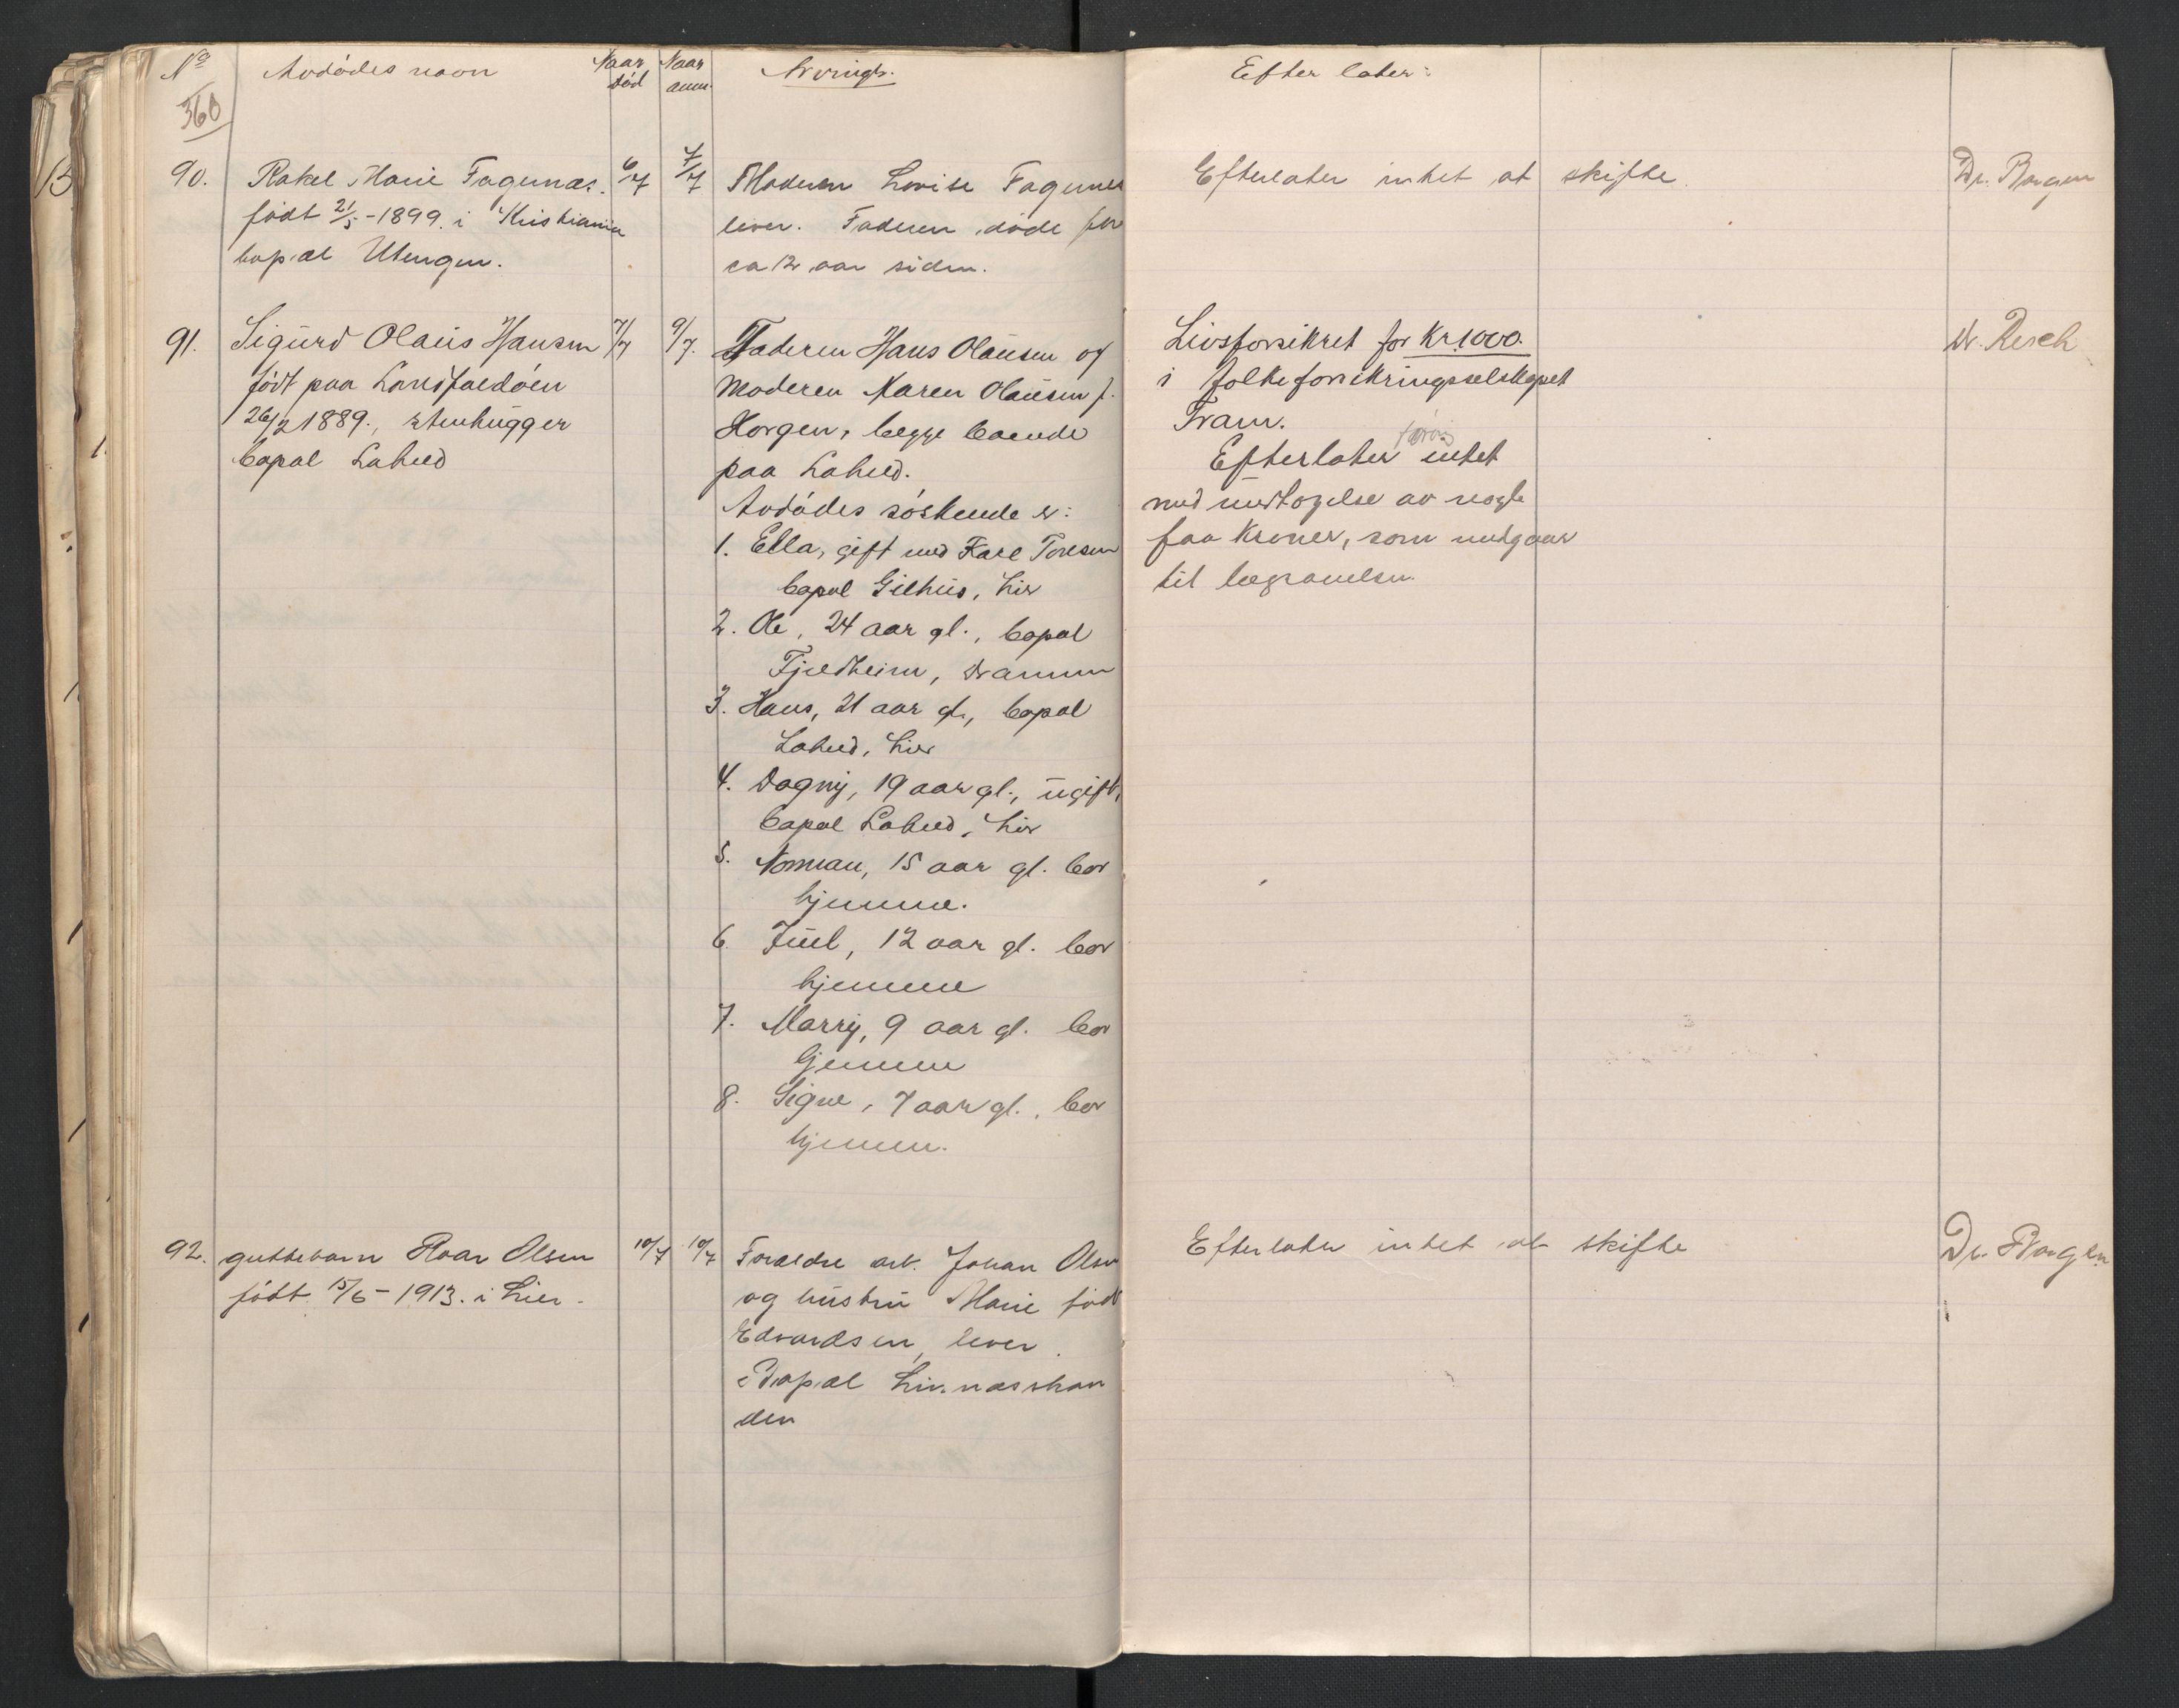 No Avdødes navn Naar død Naar anm. Arvinger. Efterlater:
360
90. Rakel Marie Fagernæs. 6/7 7/7 Moderen Lovise Fagernes Efterlater intet at skifte. Dr. Borgen
født 21/5-1899. i Kristiania lever. Faderen døde for
bopæl Utengen. ca 12 aar siden.
91. Sigurd Olaus Hansen 7/7 9/7. Faderen Hans Olausen og Livsforsikret for Kr. 1000. Dr. Resch
født paa Landfaldøen Moderen Karen Olausen f. i folkeforsikringsselskapet
26/2 1889., stenhugger Horgen, begge boende Fram.
bopæl Lahell paa Lahell. Efterlater forøv. intet
Avdødes søskende er: med undtagelse av nogle
1. Ella, gift med Karl Toresen faa kroner, som medgaar
bopæl Gilhus, Lier til begravelsen.
2. Ole, 24 aar gl., bopæl
Fjeldheim, Drammen
3. Hans, 21 aar gl., bopæl
Lahell, Lier
4. Dagny, 19 aar gl., ugift,
bopæl Lahell, Lier
5. Norman, 15 aar gl. bor
hjemme.
6. Juul, 12 aar gl. bor
hjemme
7. Marry, 9 aar gl. bor
hjemme
8. Signe, 7 aar gl., bor
hjemme.
92. guttebarn Roar Olsen 10/7 10/7 Forældre arb. Johan Olsen Efterlater intet at skifte Dr. Borgen
født 15/6-1913. i Lier. og hustru Marie født
Edvardsen, lever.
Bopæl Linnesstran
den